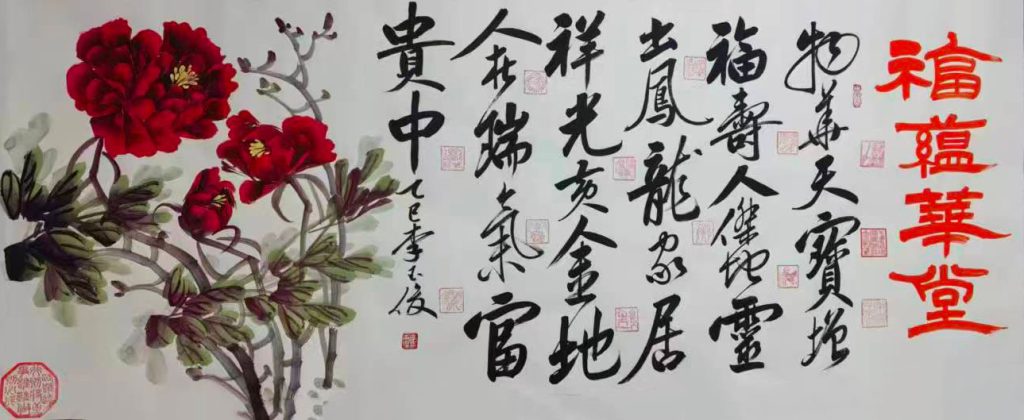 福蘊華堂
物華天寶增
福壽人傑地靈
出鳳龍家居
祥光亥金地
人在瑞氣富
貴中
乙巳李玉俊